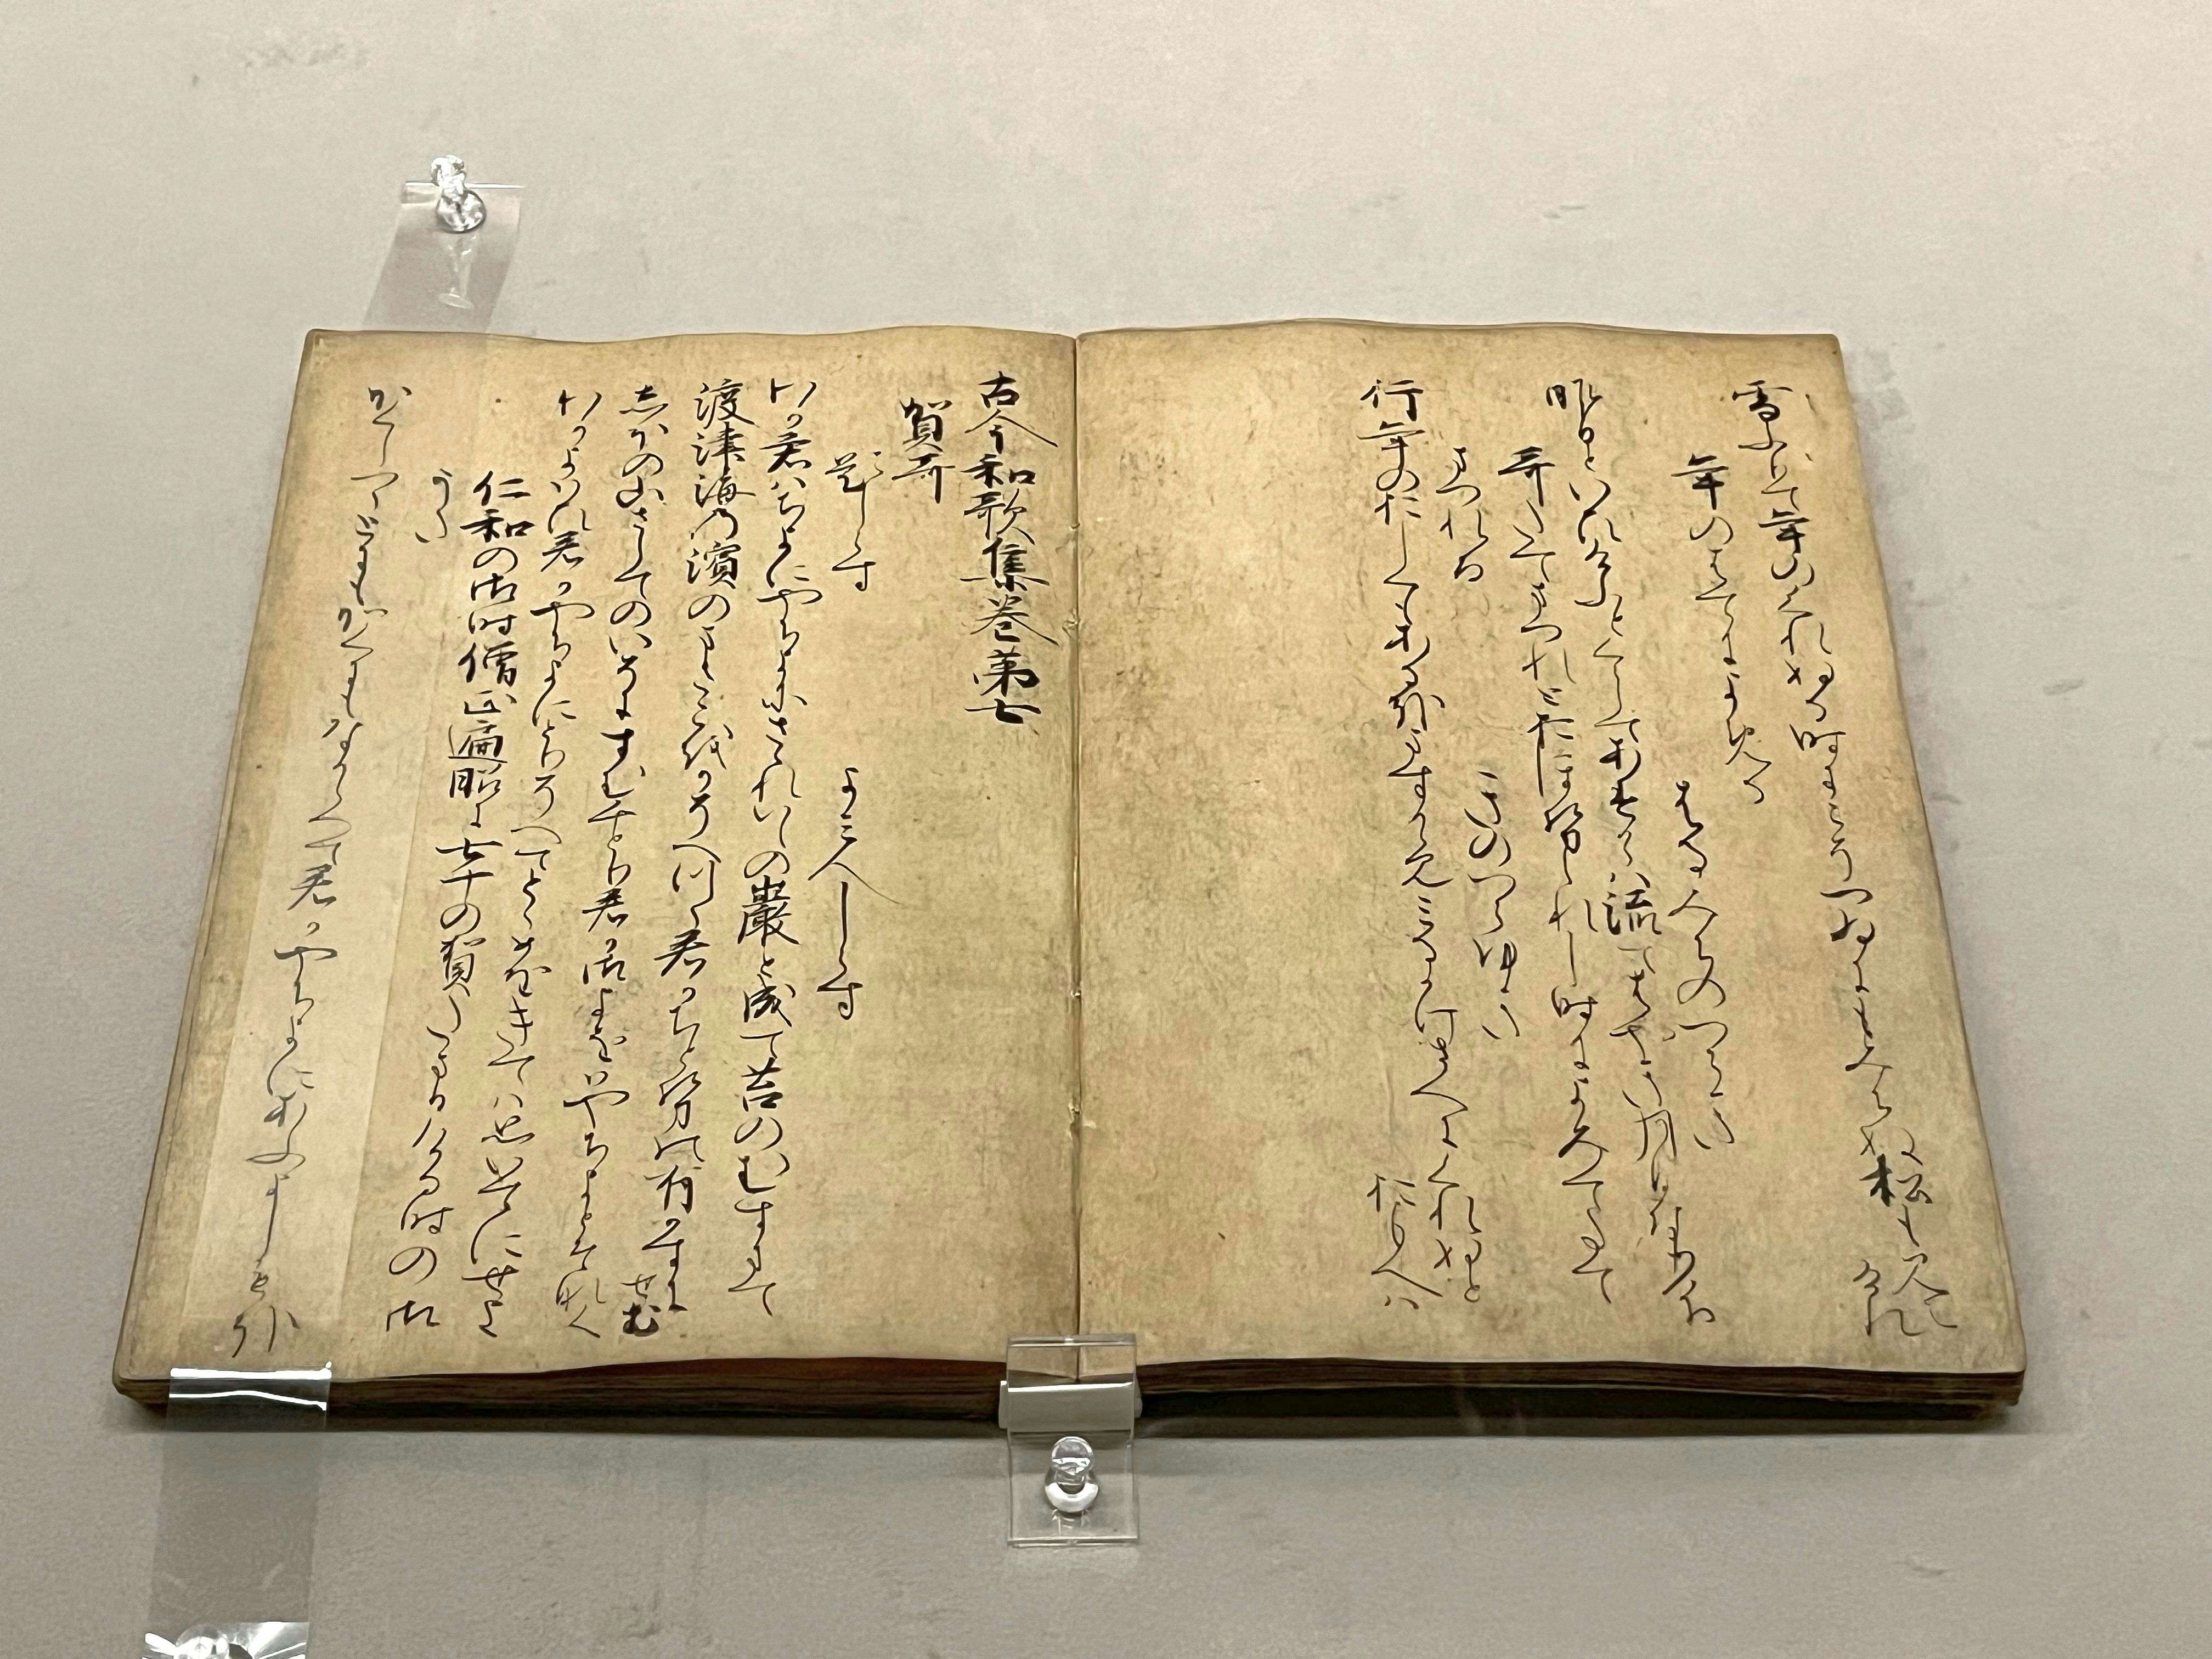 雪ふりて年のくれぬる時にこそつゐにもみちぬ松も見え
けれ
年のはてによめる
はるみちのつらき
昨日といひけふとくらしてあすかゝは流てはやき月日なりけり
哥たてまつれとおほせられし時によみてたて
まつれる
きのつらゆき
行年のおしくもあるかなますかゝみみるかけさへにくれぬと
おもへは
古今和歌集巻第七
賀哥
題しらす
よみ人しらす
わか君はちよにやちよにさゝれいしの巌と成て苔のむすまて
渡津海の濱のまさこをかそへつゝ君かちとせの有かすに
せむ
志ほの山さしてのいそにすむ千とり君か御よをはやちよとそなく
わかよはひ君かやちよにとりそへてとゝめをきては思いてにせよ
仁和の御時僧正遍昭に七十の賀たまひける時の御
うた
かくしつゝとにもかくにもなからへて君かやちよにあふよしもかな